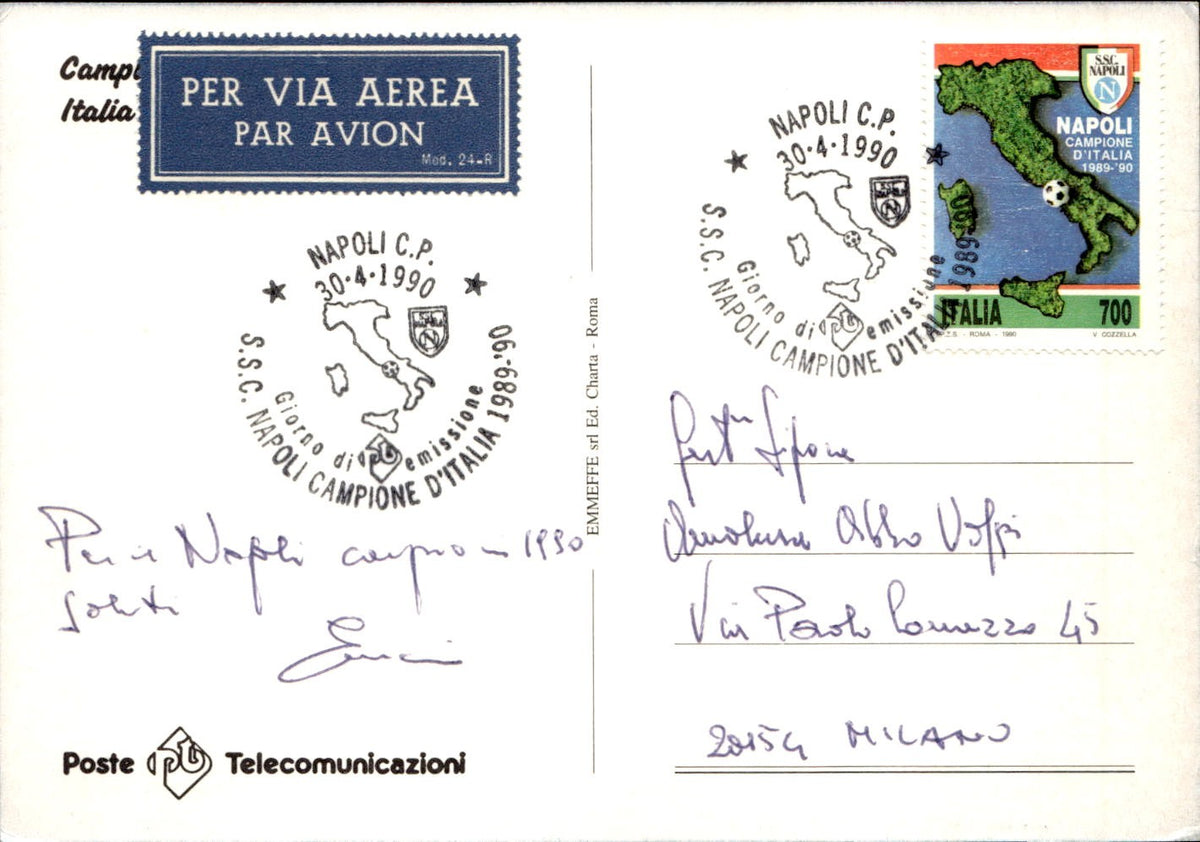 Campi
Italia
PER VIA AEREA
PAR AVION
Mod. 24-R
NAPOLI C.P.
30·4·1990
S.S.C. NAPOLI
N
Giorno di emissione
S.S.C. NAPOLI CAMPIONE D'ITALIA 1989-'90
Per il Napoli campione 1990
Saluti
Poste Telecomunicazioni
EMMEFFE srl Ed. Charta - Roma
NAPOLI C.P.
30·4·1990
S.S.C. NAPOLI
N
Giorno di emissione
S.S.C. NAPOLI CAMPIONE D'ITALIA 1989-'90
S.S.C.
NAPOLI
N
NAPOLI
CAMPIONE
D'ITALIA
1989-'90
ITALIA 700
I.P.Z.S. - ROMA - 1990 V. COZZELLA
Gent
Volpi
Via Paolo Lomazzo 45
20154 MILANO